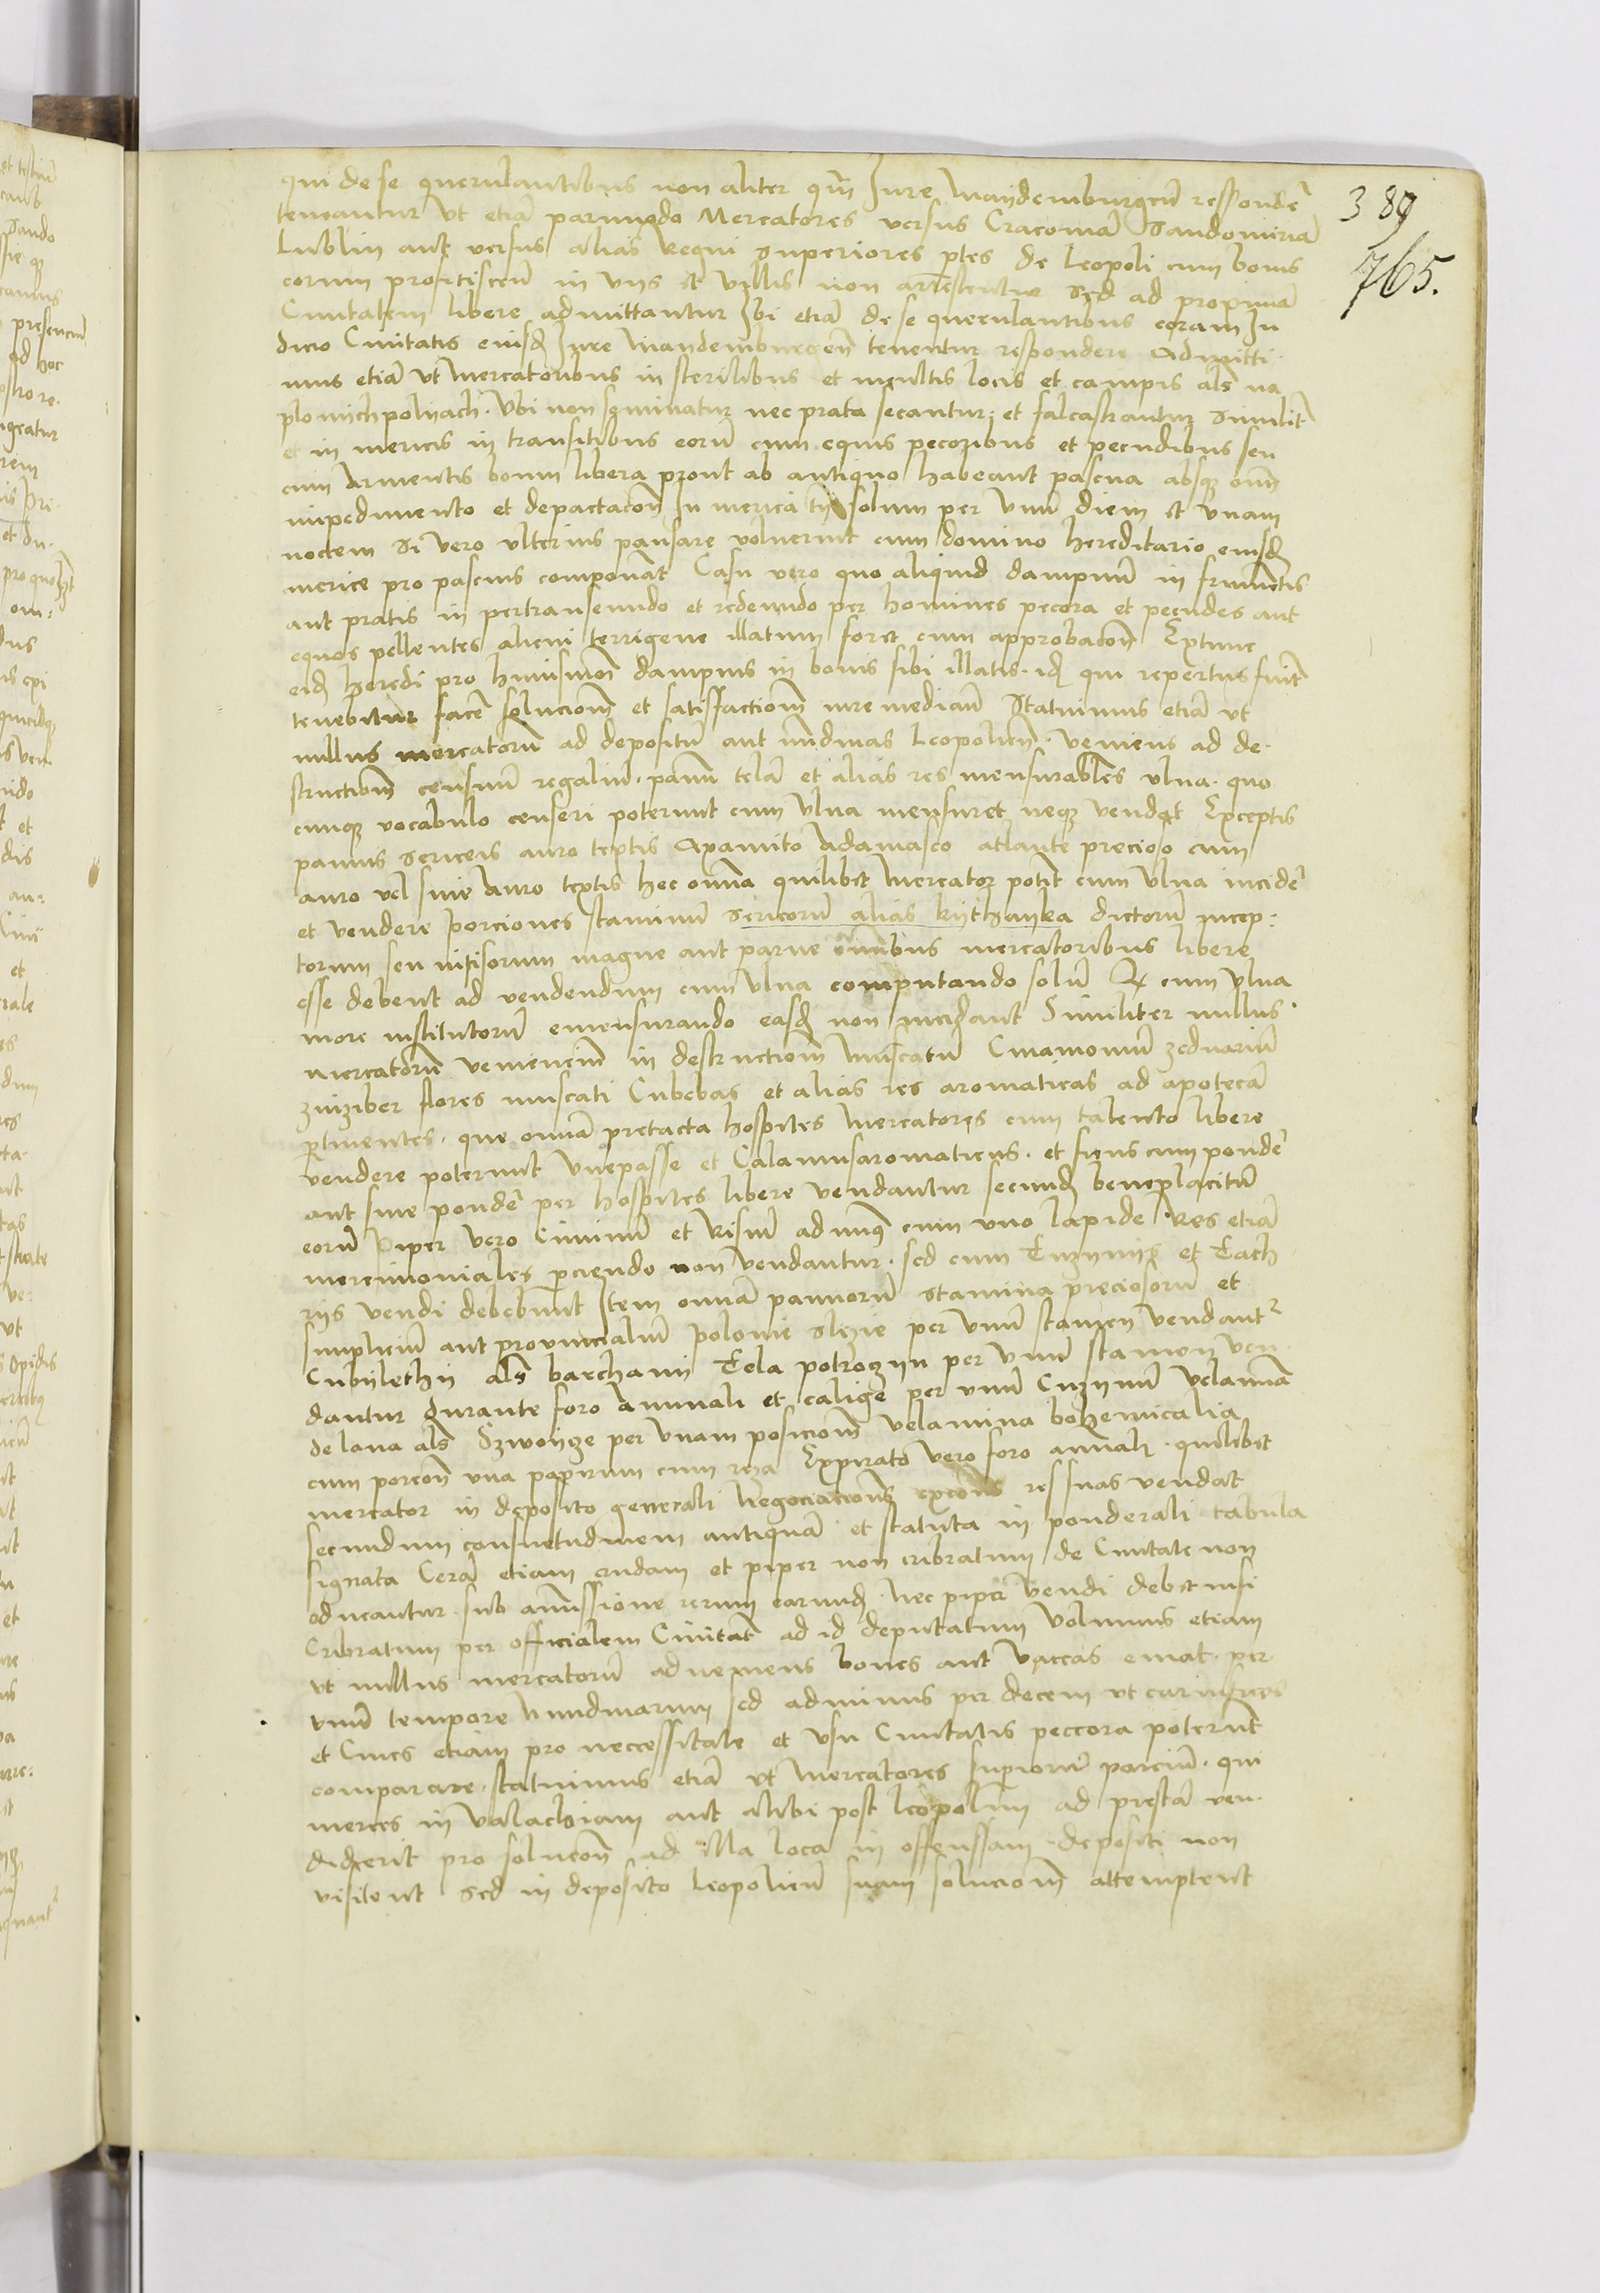 389
765.
qui de se querulantibus non aliter qm̄ Jure Maydemburgen̄ respondē
teneantur Vt etiā parimodo Mercatores versus Cracouiā Sandomiriā
Lublin aut versus alias Regni superiores ptes de Leopoli cum bonis
eorum proficiscen̄ in viis et villis non arrestentur Sed ad proximā
Ciuitatem libere admittantur Jbi etiā de se querulantibus coram Ju
dicio Ciuitatis eiusd Jure Maydemburgen̄ tenentur respondere Admitti
mus etiā vt mercatoribus in sterilibus et incultis locis et campis als na
plonichpolyach. Vbi non seminatur nec prata secantur et falcastrantur Similit̄
et in mericis in transitibus eorū cum equis pecoribus et pecudibus seu
cum Armentis boum libera prout ab antiquo habeant pascua absq̄ omī
impedimento et depactacōe Jn merica tn̄ solum per vnū diem et vnam
noctem Si vero vlterius pausare voluerint cum domino hereditario eiusd
merice pro pascuis componāt Casu vero quo aliquid dampnū in frumētis
aut pratis in pertranseundo et redeundo per homines pecora et pecudes aut
equos pellentes alicui terrigene illatum foret cum approbacōe Extunc
eid heredi pro huiusmōi dampnis in bonis sibi illatis. id qui repertus fuit̄
tenebitur facē solucionē et satisfactionē iure mediāte Statuimus etiā vt
nullus mercatorū ad depositū aut nūdinas Leopolien̄. veniens ad de-
structionē censuū regaliū. pannū telā et alias res mensurabiles vlna. quo
cunq̄ vocabulo censeri poterunt cum vlna mensuret neq̄ vendat Exceptis
pannis sericeis auro textis Axamito Adamasco atlante precioso cum
auro vel sine Auro textis hec omīa quilibet Mercator potīt cum vlna incidē
et vendere Porciones staminū Sericorū alias kythayka dictorū incep-
torum seu incisorum magne aut parue oīnibus mercatoribus libere
esse debent ad vendendum cum vlna computando solū Et cum vlna
more institutorū emensurando easd non incidant Similiter nullus
mercatorū venienciū in destructionē Muscatū Cinamomū zeduariū
zinziber flores muscati Cubebas et alias res aromaticas ad apotecā
ptinentes. que omīa pretacta hospites Mercatores cum talento libere
vendere poterunt Vuepasse et Calamusaromaticus. et ficus cum pondē
aut sine pondē per hospites libere vendantur secund beneplacitū
eorū Piper vero Ciminū et Risiū ad minq̄ cum vno lapide Res etiā
mercimoniales pciendo non vendantur. sed cum Tuzynis et Tach
riis vendi debebunt Jtem omīa pannorū stamina preciosorū et
simpliciū aut prouincialiū polonie slezie per vnū stamen vendant̄
Cubylethy als barchany Tela potrozyn per vnū stamen ven-
dantur durante foro Annuali et calige per vnū Tuzynū Velamīa
de lana als Dzwonyze per vnam posicionē velamina bohemicalia
cum porcōe vna papirum cum reza Expirato vero foro annali. quilibet
mercator in deposito generali Negociacionis res suas vendat
secundum consuetudinem antiquā et statuta in ponderali tabula
signata Cerā etiam crudam et piper non cribratum de Ciuitate non
educantur. sub amissione rerum earund Nec piper vendi debet nisi
Cribratum per officialem Ciuitatī ad id deputatum Volumus etiam
vt nullus mercatorū adueniens boues aut vaccas emat. per
vnū tempore Nundinarum sed adminus per decem vt carnifices
et Ciues etiam pro neccessitate et vsu Ciuitatis peccora poterūt
comparare. statuimus etiā vt Mercatores superiorū parciū. qui
merces in valachiam aut alibi post Leopolim ad prestā ven-
diderit pro solucōe ad illa loca in offenssam depositi non
visitent Sed in deposito Leopolien̄ suam solucionē attemptent